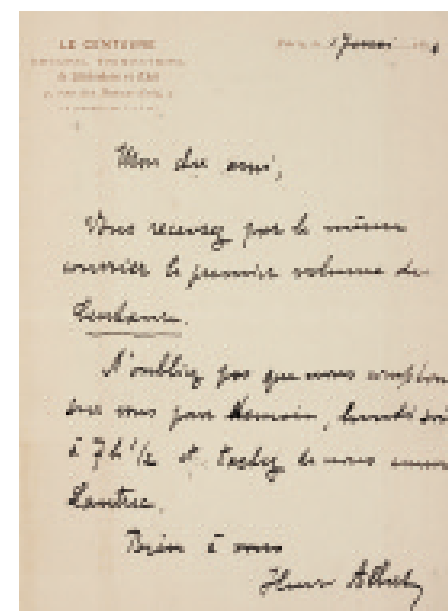 LE CENTAURE
RECUEIL TRIMESTRIEL
de Littérature et d'Art
Mon cher ami,
Vous recevez par le même
courrier le premier volume du
Centaure.
N'oubliez pas que nous comptons
sur vous pour demain, lundi soir
à 7h 1/2 et tachez de nous amener
Lautrec.
Bien à vous
Henri Albert